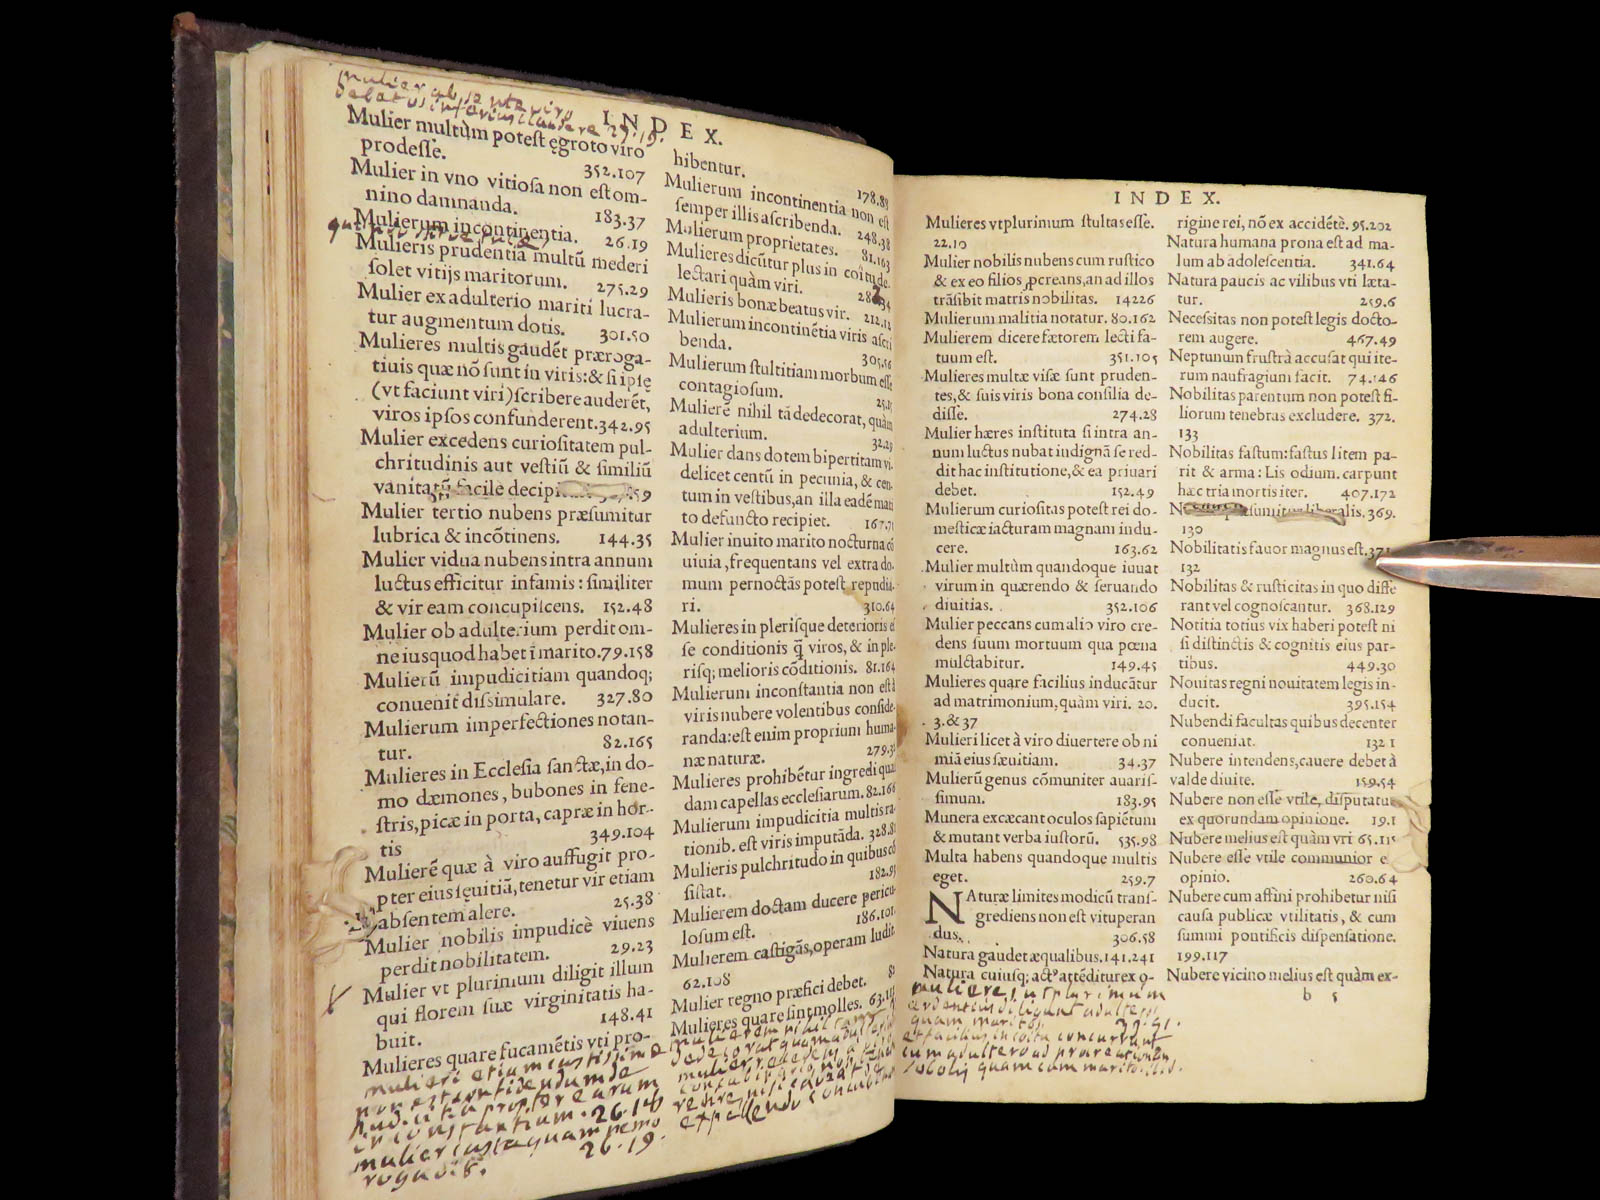 mulier absente viro
debet
INDEX.
Mulier multùm potest ęgroto viro
prodesse. 352.107
Mulier in vno vitiosa non est om-
nino damnanda. 183.37
Mulierum incontinentia. 26.19
Mulieris prudentia multũ mederi
solet vitijs maritorum. 275.29
Mulier ex adulterio mariti lucra-
tur augmentum dotis. 301.50
Mulieres multis gaudẽt præroga-
tiuis quæ nõ sunt in viris:& si ipsę
(vt faciunt viri) scribere auderẽt,
viros ipsos confunderent. 342.95
Mulier excedens curiositatem pul-
chritudinis aut vestiũ & similiũ
vanitatũ facile
Mulier tertio nubens præsumitur
lubrica & incõtinens. 144.35
Mulier vidua nubens intra annum
luctus efficitur infamis: similiter
& vir eam concupiscens. 152.48
Mulier ob adulterium perdit om-
ne ius quod habet ĩ marito. 79.158
Mulierũ impudicitiam quandoq;
conuenit dissimulare. 327.80
Mulierum imperfectiones notan-
tur. 82.165
Mulieres in Ecclesia sanctæ, in do-
mo dæmones, bubones in fene-
stris, picæ in porta, capræ in hor-
tis 349.104
Mulierẽ quæ à viro auffugit pro-
pter eius sęuitiã, tenetur vir etiam
absentem alere. 25.38
Mulier nobilis impudicè viuens
perdit nobilitatem. 29.23
Mulier vt plurimum diligit illum
qui florem suæ virginitatis ha-
buit. 148.41
Mulieres quare fucamẽtis vti pro-
mulieri etiam castissime
non est confidendum de
pudicitia propter earum
inconstantiam. 26.19
mulier casta quam nemo
rogauit. 26.19.
hibentur. 178.89
Mulierum incontinentia non est
semper illis ascribenda. 248.38
Mulierum proprietates. 81.163
Mulieres dicũtur plus in coitu de-
lectari quàm viri.
Mulieris bonæ beatus vir. 212.12
Mulierum incontinẽtia viris ascri
benda. 305.56
Mulierum stultitiam morbum esse
contagiosum.
Mulierẽ nihil tã dedecorat, quàm
adulterium. 32.29
Mulier dans dotem bipertitam vi-
delicet centũ in pecunia, & cen-
tum in vestibus, an illa eadẽ mari
to defuncto recipiet. 167.71
Mulier inuito marito nocturna cõ
uiuia, frequentans vel extra do-
mum pernoctãs potest repudia-
ri. 310.64
Mulieres in plerisque deterioris es
se conditionis q̃ viros, & in ple-
risq; melioris cõditionis. 81.164
Mulierum inconstantia non est à
viris nubere volentibus conside-
randa: est enim proprium huma-
næ naturæ.
Mulieres prohibẽtur ingredi quas
dam capellas ecclesiarum. 82.166
Mulierum impudicitia multis ra-
tionib. est viris imputãda. 328.81
Mulieris pulchritudo in quibus cõ
sistat. 182.93
Mulierem doctam ducere pericu-
losum est. 186.101
Mulierem castigãs, operam ludit.
62.108
Mulier regno præfici debet.
Mulieres quare sint molles.
mulierem nihil
dedecorat quam
INDEX.
Mulieres vt plurimum stultas esse.
22.10
Mulier nobilis nubens cum rustico
& ex eo filios ꝓcreans, an ad illos
trãsibit matris nobilitas. 14226
Mulierum malitia notatur. 80.162
Mulierem dicere fætorem lecti fa-
tuum est. 351.105
Mulieres multæ visæ sunt pruden-
tes, & suis viris bona consilia de-
disse. 274.28
Mulier hæres instituta si intra an-
num luctus nubat indignã se red-
dit hac institutione, & ea priuari
debet. 152.49
Mulierum curiositas potest rei do-
mesticæ iacturam magnam indu-
cere. 163.62
Mulier multùm quandoque iuuat
virum in quærendo & seruando
diuitias. 352.106
Mulier peccans cum alio viro cre-
dens suum mortuum qua pœna
mulctabitur. 149.45
Mulieres quare facilius inducãtur
ad matrimonium, quàm viri. 20.
3. & 37
Mulieri licet à viro diuertere ob ni
miã eius sæuitiam. 34.37
Mulierũ genus cõmuniter auaris-
simum. 183.95
Munera excæcant oculos sapiẽtum
& mutant verba iustorũ. 535.98
Multa habens quandoque multis
eget. 259.7
NAturæ limites modicũ trans-
grediens non est vituperan
dus. 306.58
Natura gaudet æqualibus. 141.241
Natura cuiusq; actꝰ attẽditur ex o-
mulieres ut plurimum
ardentius diligunt adulterum
quam maritos. 39.91.
concurrunt
cum adultero ad procreationem
sobolis quam cum marito.
rigine rei, nõ ex accidẽtè. 95.202
Natura humana prona est ad ma-
lum ab adolescentia. 341.64
Natura paucis ac vilibus vti læta-
tur. 259.6
Necessitas non potest legis docto-
rem augere. 467.49
Neptunum frustrà accusat qui ite-
rum naufragium facit. 74.146
Nobilitas parentum non potest fi-
liorum tenebras excludere. 372.
133
Nobilitas fastum: fastus litem pa-
rit & arma: Lis odium. carpunt
hæc tria mortis iter. 407.172
præsumitur liberalis. 369.
130
Nobilitatis fauor magnus est. 371.
132
Nobilitas & rusticitas in quo diffe
rant vel cognoscantur. 368.129
Notitia totius vix haberi potest ni
si distinctis & cognitis eius par-
tibus. 449.30
Nouitas regni nouitatem legis in-
ducit. 395.154
Nubendi facultas quibus decenter
conueniat. 132 1
Nubere intendens, cauere debet à
valde diuite. 159.54
Nubere non esse vtile, disputatur
ex quorundam opinione. 19.1
Nubere melius est quàm vri 65.115
Nubere esse vtile communior e
opinio. 260.64
Nubere cum affini prohibetur nisi
causa publicæ vtilitatis, & cum
summi pontificis dispensatione.
199.117
Nubere vicino melius est quàm ex-
b 5